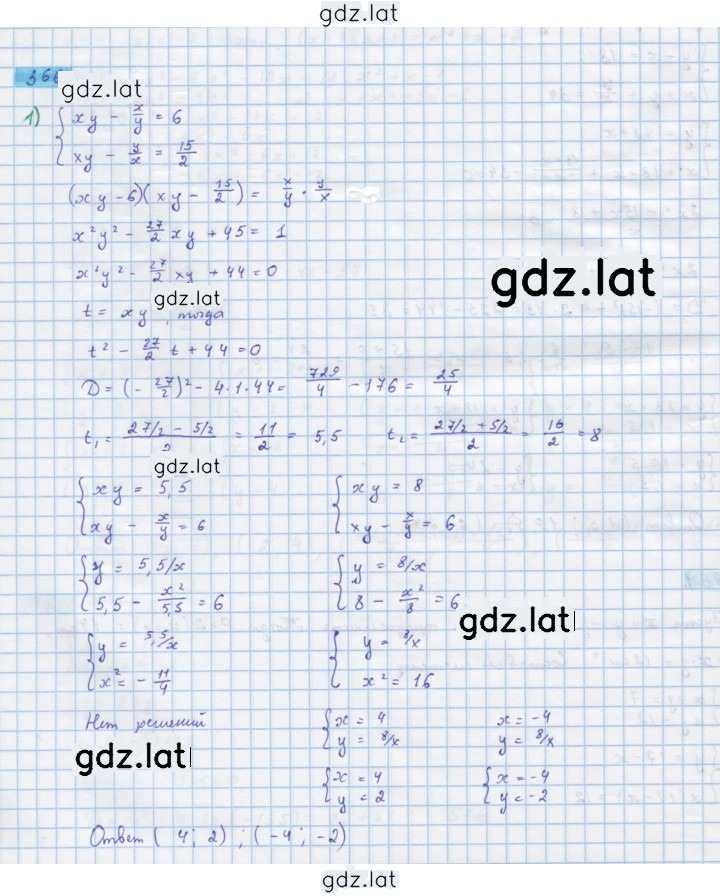 gdz.lat
366
gdz.lat
1) { xy - x/y = 6
xy - y/x = 15/2
(xy - 6)(xy - 15/2) = x/y · y/x
x²y² - 27/2 xy + 45 = 1
x²y² - 27/2 xy + 44 = 0
gdz.lat
gdz.lat
t = xy, тогда
t² - 27/2 t + 44 = 0
D = (- 27/2)² - 4·1·44 = 729/4 - 176 = 25/4
t₁ = (27/2 - 5/2)/2 = 11/2 = 5,5 t₂ = (27/2 + 5/2)/2 = 16/2 = 8
gdz.lat
{ xy = 5,5 { xy = 8
xy - x/y = 6 xy - x/y = 6
{ y = 5,5/x { y = 8/x
5,5 - x²/5,5 = 6 8 - x²/8 = 6
gdz.lat
{ y = 5,5/x { y = 8/x
x² = - 11/4 x² = 16
Нет решений { x = 4 x = -4
y = 8/x y = 8/x
gdz.lat
{ x = 4 { x = -4
y = 2 y = -2
Ответ (4; 2); (-4; -2)
gdz.lat